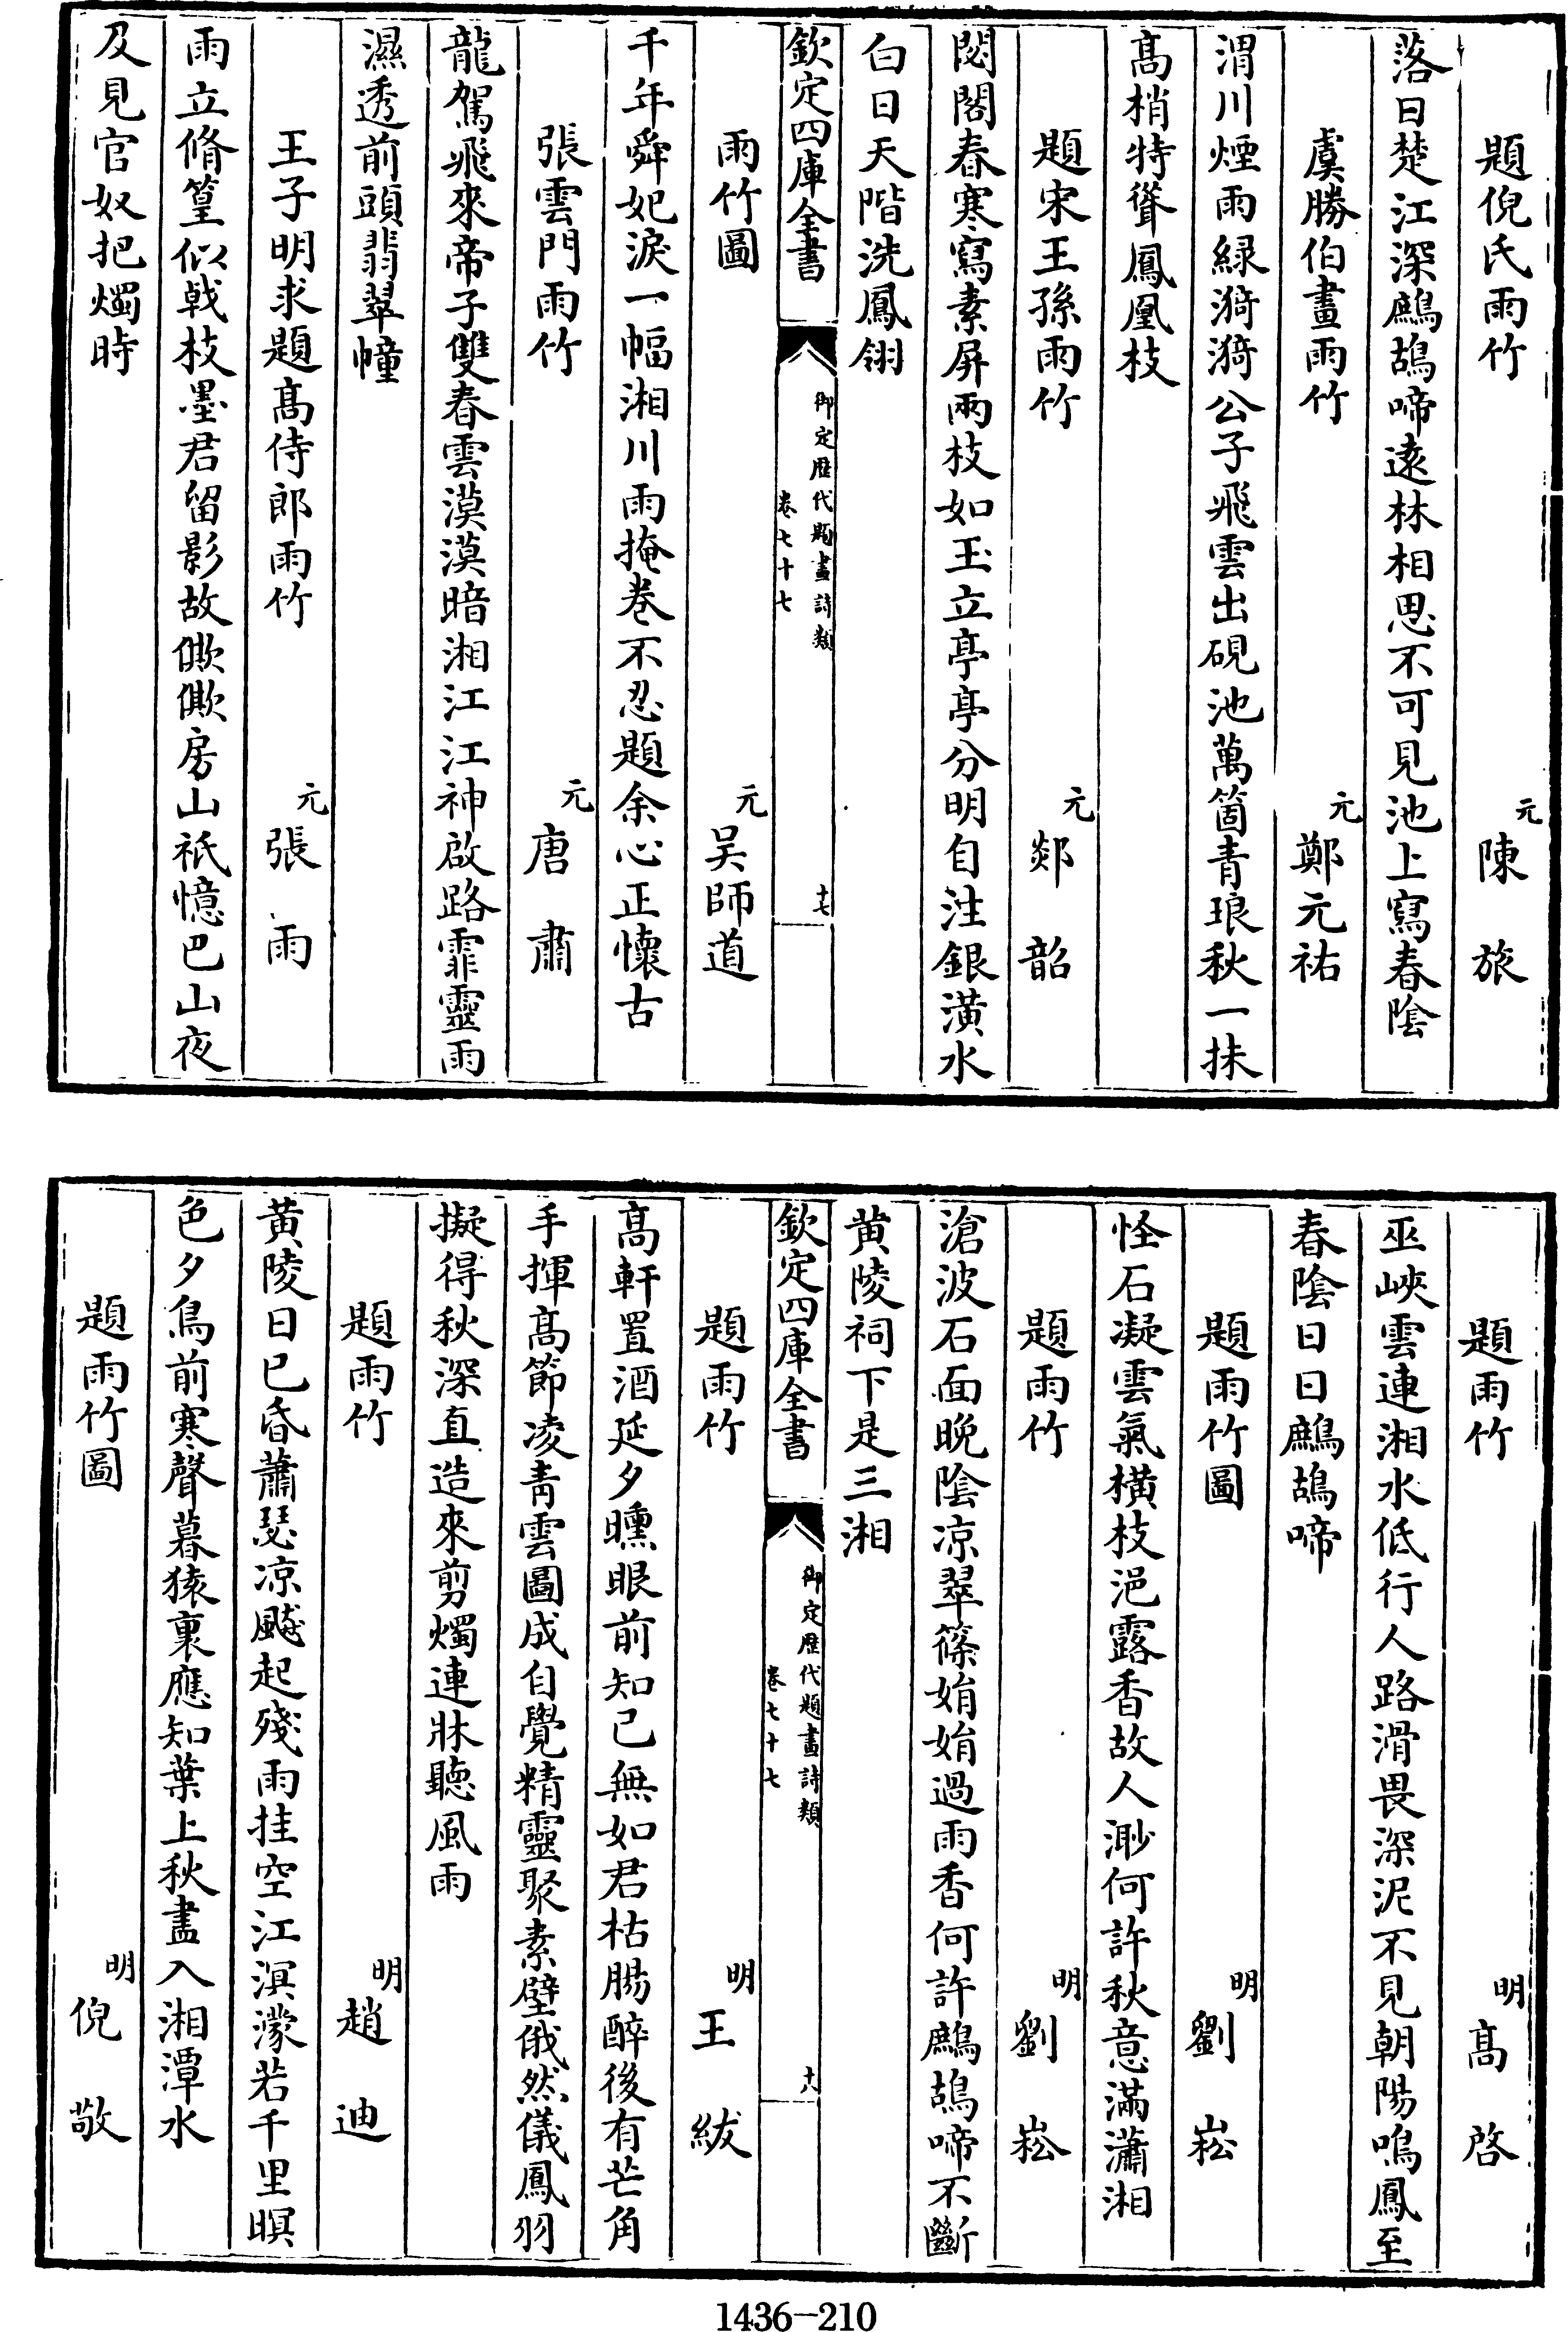 題倪氏雨竹　元陳旅
落日楚江深鷓鴣啼遠林相思不可見池上寫春隂
虞勝伯畫雨竹　元鄭元祐
渭川煙雨緑漪漪公子飛雲出硯池萬箇青琅秋一抹
髙梢特聳鳳凰枝
題宋王孫雨竹　元郯韶
閟閣春寒寫素屏兩枝如玉立亭亭分明自注銀潢水
白日天階洗鳳翎
欽定四庫全書　御定歴代題畫詩類卷七十七　十七
雨竹圖　元吴師道
千年舜妃淚一幅湘川雨掩巻不忍題余心正懷古
張雲門雨竹　元唐肅
龍駕飛來帝子雙春雲漠漠暗湘江江神啟路霏靈雨
濕透前頭翡翠幢
王子明求題髙侍郎雨竹　元張雨
雨立脩篁似㦸枝墨君留影故僛僛房山祇憶巴山夜
及見官奴把燭時
題雨竹　明髙啓
巫峽雲連湘水低行人路滑畏深泥不見朝陽鳴鳳至
春隂日日鷓鴣啼
題雨竹圖　明劉崧
怪石凝雲氣横枝浥露香故人渺何許秋意滿瀟湘
題雨竹　明劉崧
滄波石面晩隂凉翠篠娟娟過雨香何許鷓鴣啼不斷
黄陵祠下是三湘
欽定四庫全書　御定歴代題畫詩類卷七十七　十八
題雨竹　明王紱
髙軒置酒延夕曛眼前知己無如君枯腸醉後有芒角
手揮髙節凌青雲圖成自覺精靈聚素壁俄然儀鳳羽
擬得秋深直造來剪燭連牀聽風雨
題雨竹　明趙迪
黄陵日已昏蕭瑟凉飈起殘雨挂空江溟濛若千里暝
色夕鳥前寒聲暮猿裏應知葉上秋盡入湘潭水
題雨竹圖　明倪敬
1436-210